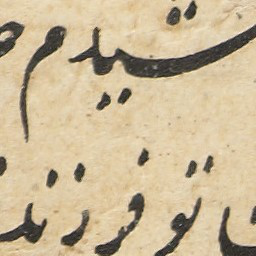 شیدم
تو فرزند